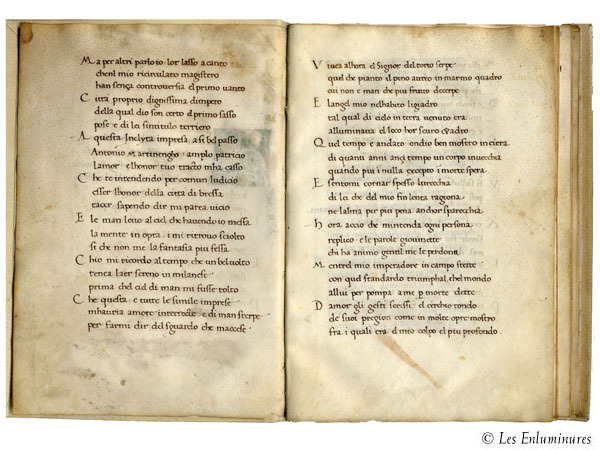 Ma per altri parlo io lor lasso a canto
chenl mio ricirculato magistero
han senza controversia el primo uanto
Citta proprio dignissima dimpero
della qual dio son certo el primo sasso
pose e di lei sintitulo terriero
Aquesta Inclyta impresa a si bel passo
Antonio Martinengho amplo patricio
lamor elhonor tuo tracto mha casso
Che te intendendo per comun Iudicio
esser lhonor della citta di bressa
tacer sapendo dir mi parea uicio
E le man leuo al ciel che hauendo io messa
la mente in opra i mi ritrouo sciolto
si che non me la fantasia piu fessa
Chio mi ricordo al tempo che un bel uolto
tenea laer sereno in milanese
prima chel ciel di man mi fusse tolto
Che questa e tutte le simile imprese
mhauria amore interrocte e di man
per farmi dir del sguardo che maccese
Viuea alhora el Signor del torto serpe
quel che pianto el pino aurito in marmo quadro
cui non e man che piu frutto decerpe
E langel mio nelhabito ligiadro
tal qual di cido in terra uenuto era
alluminaua el loco hor scuro
Quel tempo e andato ondio ben mostro in ciera
di quanti anni anci tempo un corpo inuecchia
quando piu i nulla excepto i morte spera
E sentomi tornar spesso lorecchia
di lei che del mio fin lenta ragiona
ne lalma per piu pena anchor sparecchia
hora accio che mintenda ogni persona
replico e le parole giouinette
chi ha animo gentil me le perdona
Mentrel mio imperadore in campo stette
con quel standardo triumphal chel mondo
allui per pompa a me p morte dette
Damor gli gesti scrissi el cerchio tondo
de suoi pregion come in molte opre mostro
fra i quali era el mio colpo el piu profondo
© Les Enluminures